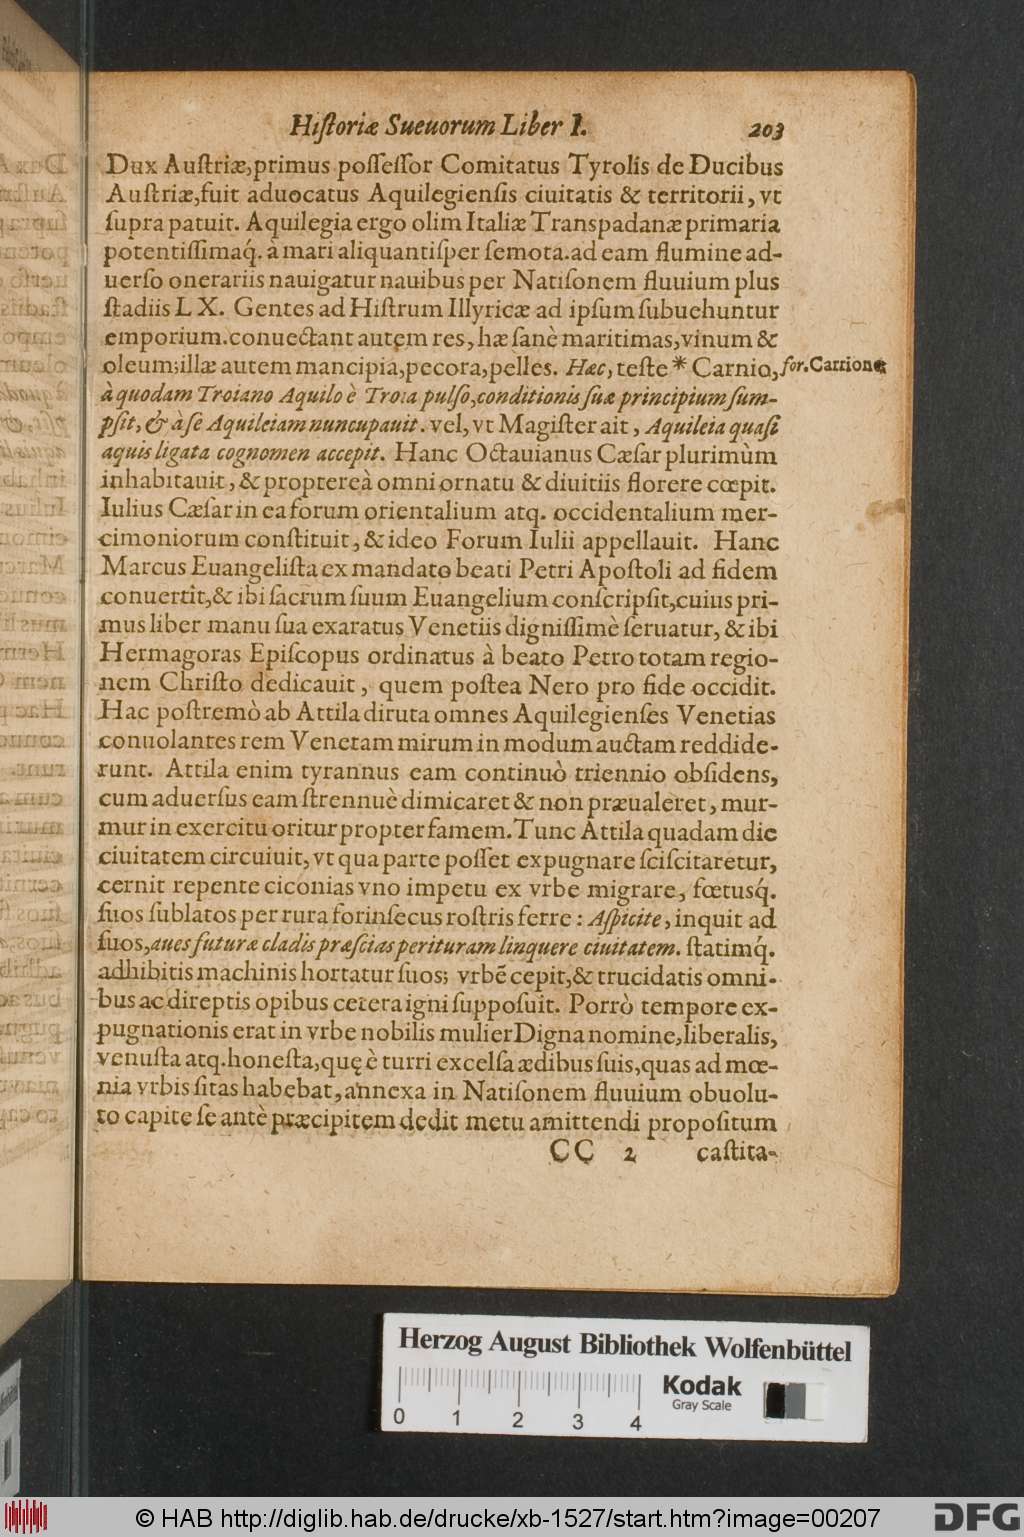 Hiſtoriæ Sueuorum Liber I. 203
Dux Auſtriæ,primus poſſeſſor Comitatus Tyrolis de Ducibus
Auſtriæ,fuit aduocatus Aquilegienſis ciuitatis & territorii, vt
ſupra patuit. Aquilegia ergo olim Italiæ Transpadanæ primaria
potentiſſimaq́. à mari aliquantiſper ſemota.ad eam flumine ad-
uerſo onerariis nauigatur nauibus per Natiſonem fluuium plus
ſtadiis L X. Gentes ad Hiſtrum Illyricæ ad ipſum ſubuehuntur
emporium.conuectant autem res, hæ ſanè maritimas,vinum &
oleum;illæ autem mancipia,pecora,pelles. Hæc, teſte * Carnio, for. Carrione
à quodam Troiano Aquilo è Troia pulſo,conditionis ſuæ principium ſum-
pſit, & à ſe Aquileiam nuncupauit. vel, vt Magiſter ait, Aquileia quaſi
aquis ligata cognomen accepit. Hanc Octauianus Cæſar plurimùm
inhabitauit, & proptereà omni ornatu & diuitiis florere cœpit.
Iulius Cæſar in ea forum orientalium atq. occidentalium mer-
cimoniorum conſtituit, & ideo Forum Iulii appellauit. Hanc
Marcus Euangeliſta ex mandato beati Petri Apoſtoli ad fidem
conuertit,& ibi ſacrum ſuum Euangelium conſcripſit,cuius pri-
mus liber manu ſua exaratus Venetiis digniſſimè ſeruatur, & ibi
Hermagoras Epiſcopus ordinatus à beato Petro totam regio-
nem Chriſto dedicauit, quem poſtea Nero pro fide occidit.
Hac poſtremò ab Attila diruta omnes Aquilegienſes Venetias
conuolantes rem Venetam mirum in modum auctam reddide-
runt. Attila enim tyrannus eam continuò triennio obſidens,
cum aduerſus eam ſtrennuè dimicaret & non præualeret, mur-
mur in exercitu oritur propter famem. Tunc Attila quadam die
ciuitatem circuiuit, vt qua parte poſſet expugnare ſciſcitaretur,
cernit repente ciconias vno impetu ex vrbe migrare, fœtusq́.
ſuos ſublatos per rura forinſecus roſtris ferre: Aſpicite, inquit ad
ſuos,aues futuræ cladis præſcias perituram linquere ciuitatem. ſtatimq́.
adhibitis machinis hortatur ſuos; vrbē cepit,& trucidatis omni-
bus ac direptis opibus cetera igni ſuppoſuit. Porrò tempore ex-
pugnationis erat in vrbe nobilis mulier Digna nomine,liberalis,
venuſta atq. honeſta,quę è turri excelſa ædibus ſuis,quas ad mœ-
nia vrbis ſitas habebat, annexa in Natiſonem fluuium obuolu-
to capite ſe antè præcipitem dedit metu amittendi propoſitum
CC 2 caſtita-
Herzog August Bibliothek Wolfenbüttel
Kodak
Gray Scale
0 1 2 3 4
© HAB http://diglib.hab.de/drucke/xb-1527/start.htm?image=00207
DFG